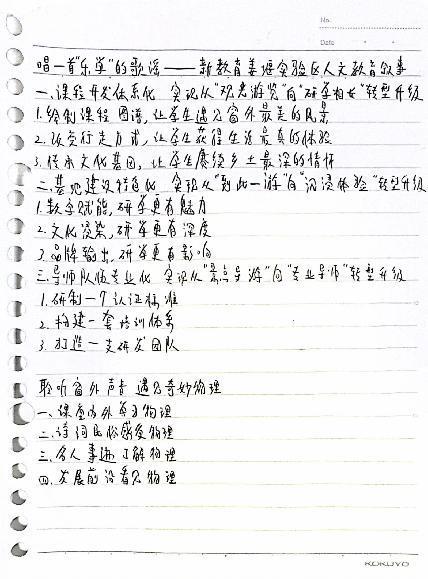 No.
Date
唱一首"乐学"的歌谣——新教育姜堰实验区人文教育叙事
一、课程开发体系化 实现从"观光游览"向"研学相长"转型升级
1.绘制课程图谱，让学生遇见窗外最美的风景
2.改变行走方式，让学生获得生活最真的体验
3.传承文化基因，让学生赓续乡土最深的情怀
二、基地建设特色化 实现从"到此一游"向"沉浸体验"转型升级
1.数字赋能，研学更有魅力
2.文化浸染，研学更有深度
3.品牌输出，研学更有影响
三、导师队伍专业化 实现从"景点导游"向"专业导师"转型升级
1.研制一个认证标准
2.构建一套培训体系
3.打造一支研发团队
聆听窗外声音 遇见奇妙物理
一、课堂内外学习物理
二、诗词民俗感受物理
三、名人事迹了解物理
四、发展前沿看见物理
KOKUYO